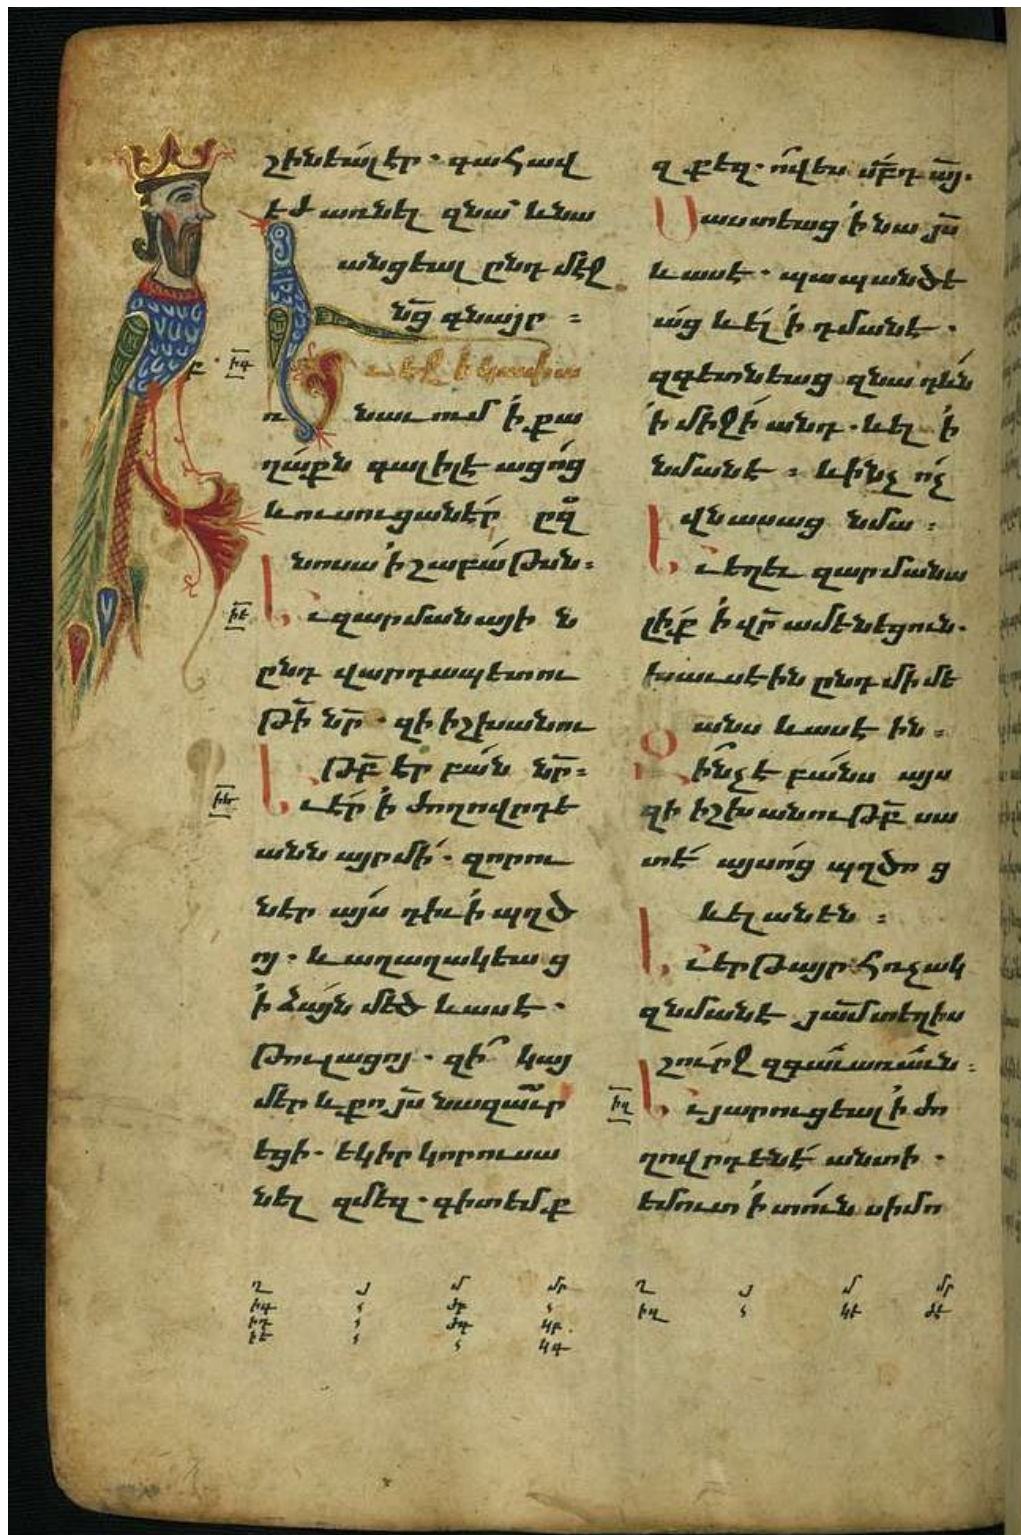 շինեալ էր. գահավ
էժ առնել զնա՝ և նա
անցեալ ընդ մէջ
նց գնայր :
Եւ էջ ի կափառ
նաւում ի քա
ղաքն գալիլէացոց
և ուսուցանէր զ
նոսա ի շաբաթուն:
Եւ զարմանային
ընդ վարդապետու
թի նր. զի իշխանու
թբ էր բան նր:
Եւ էր ի ժողովրդե
անն այր մի. զորու
նէր այս դիւի պղծ
ոյ. և աղաղակեաց
ի ձայն մեծ և ասէ.
Թուլացոյ. զի կայ
մեր և քո յս նազաւր
եցի. եկիր կորուսա
նել զմեզ. գիտեմք
զքեզ. ո՞վ ես սբդ այ.
Սաստեաց ի նա յս
և ասէ. պապանձե
աց և ել ի դմանէ.
զգետնեաց զնա դևն
ի միջի անդ. և ել ի
նմանէ : և ինչ ոչ
վնասաց նմա :
Եւ եղև զարմանա
լիք ի վր ամենեցուն.
խաւսէին ընդ միմե
անս և ասէին :
Զինչ է բանս այս
զի իշխանութբ սա
տէ այսոց պղծոց
և ելանեն :
Եւ երթայր հռչակ
զնմանէ յամ տեղիս
շուրջ զգաւառաւն :
Եւ յարուցեալ ի ժո
ղովրդենէ անտի.
եմուտ ի տուն սիմո